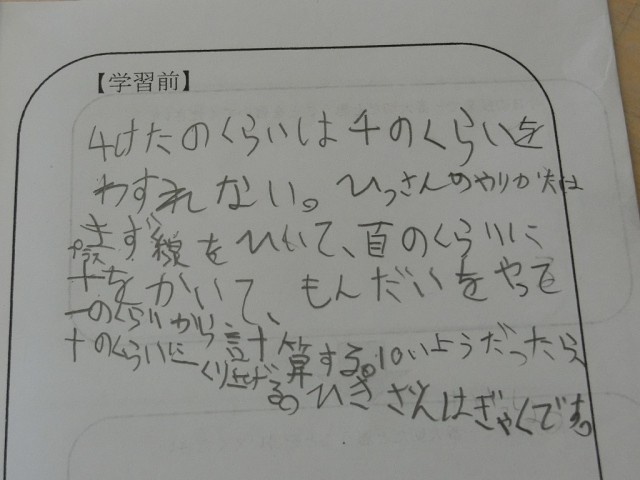 【学習前】
4けたのくらいは千のくらいを
わすれない。ひっさんのやりかたは
まず線をひいて、百のくらいに
プラス
十をかいて、もんだいをやって
一のくらいから計算する。10いじょうだったら
十のくらいにくり上げる。ひきざんはぎゃくです。